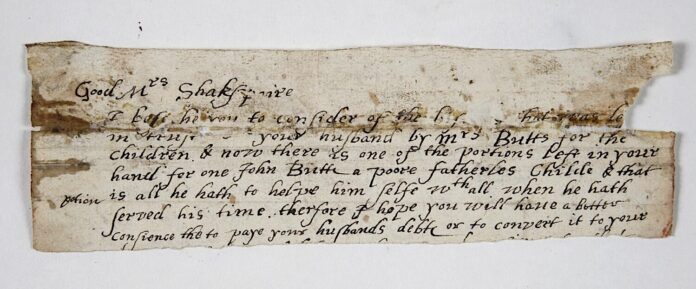 Good Mrs Shakspaire
I bese he you to consider of the that was le
in truse your husband by mrs Butts for the
Children & now there is one of the portions Left in your
hand for one John Butte a poore fatherles Childe & that
potion is all he hath to helpe him selfe wth all when he hath
served his time. therfore I hope you will have a better
Consience the to paye your husbands debte or to convert it to your